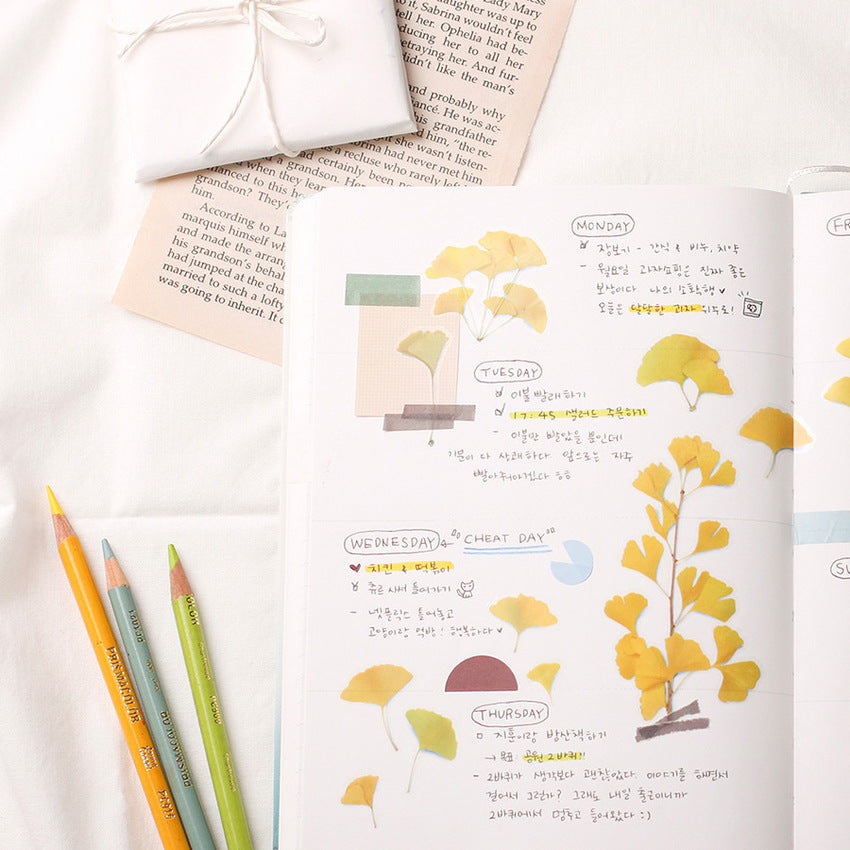 Lady Mary
daughter was up to
it, Sabrina wouldn't feel
ducing her to all her
Ophelia had be-
etraying her. And fur-
didn't like the man's
and probably why
fiancé. He was ac-
his grandfather
ed him, "the re-
out she wasn't listen-
rina had never met him
was a recluse who rarely left
had certainly been
and a grandson. Her
when they learn
balanced to this
grandson? They
him.
According to La
marquis himself wh
and made the arran
his grandson's behal
had jumped at the cha
married to such a lofty
was going to inherit. It d
MONDAY
장보기 - 간식 & 비누, 치약
- 월요일 과자쇼핑은 진짜 좋은
보상이다. 나의 소확행 ♥
오늘은 달달한 과자 위주로!
TUESDAY
이불 빨래하기
17:45 샐러드 주문하기
- 이불만 빨았을 뿐인데
기분이 다 상쾌하다. 앞으로는 자주
빨아줘야겠다 ㅎㅎ
WEDNESDAY ← "CHEAT DAY"
♥ 치킨 & 떡볶이
츄르 사서 들어가기
- 넷플릭스 틀어놓고
고양이랑 먹방! 행복하다 ♥
THURSDAY
□ 지훈이랑 밤산책하기
→ 목표: 공원 2바퀴!!
- 2바퀴가 생각보다 괜찮았다. 이야기를 하면서
걸어서 그런가? 그래도 내일 출근이니까
2바퀴에서 멈추고 들어왔다 :)
FR
SU
PRISMACOLOR
PRISMACOLOR